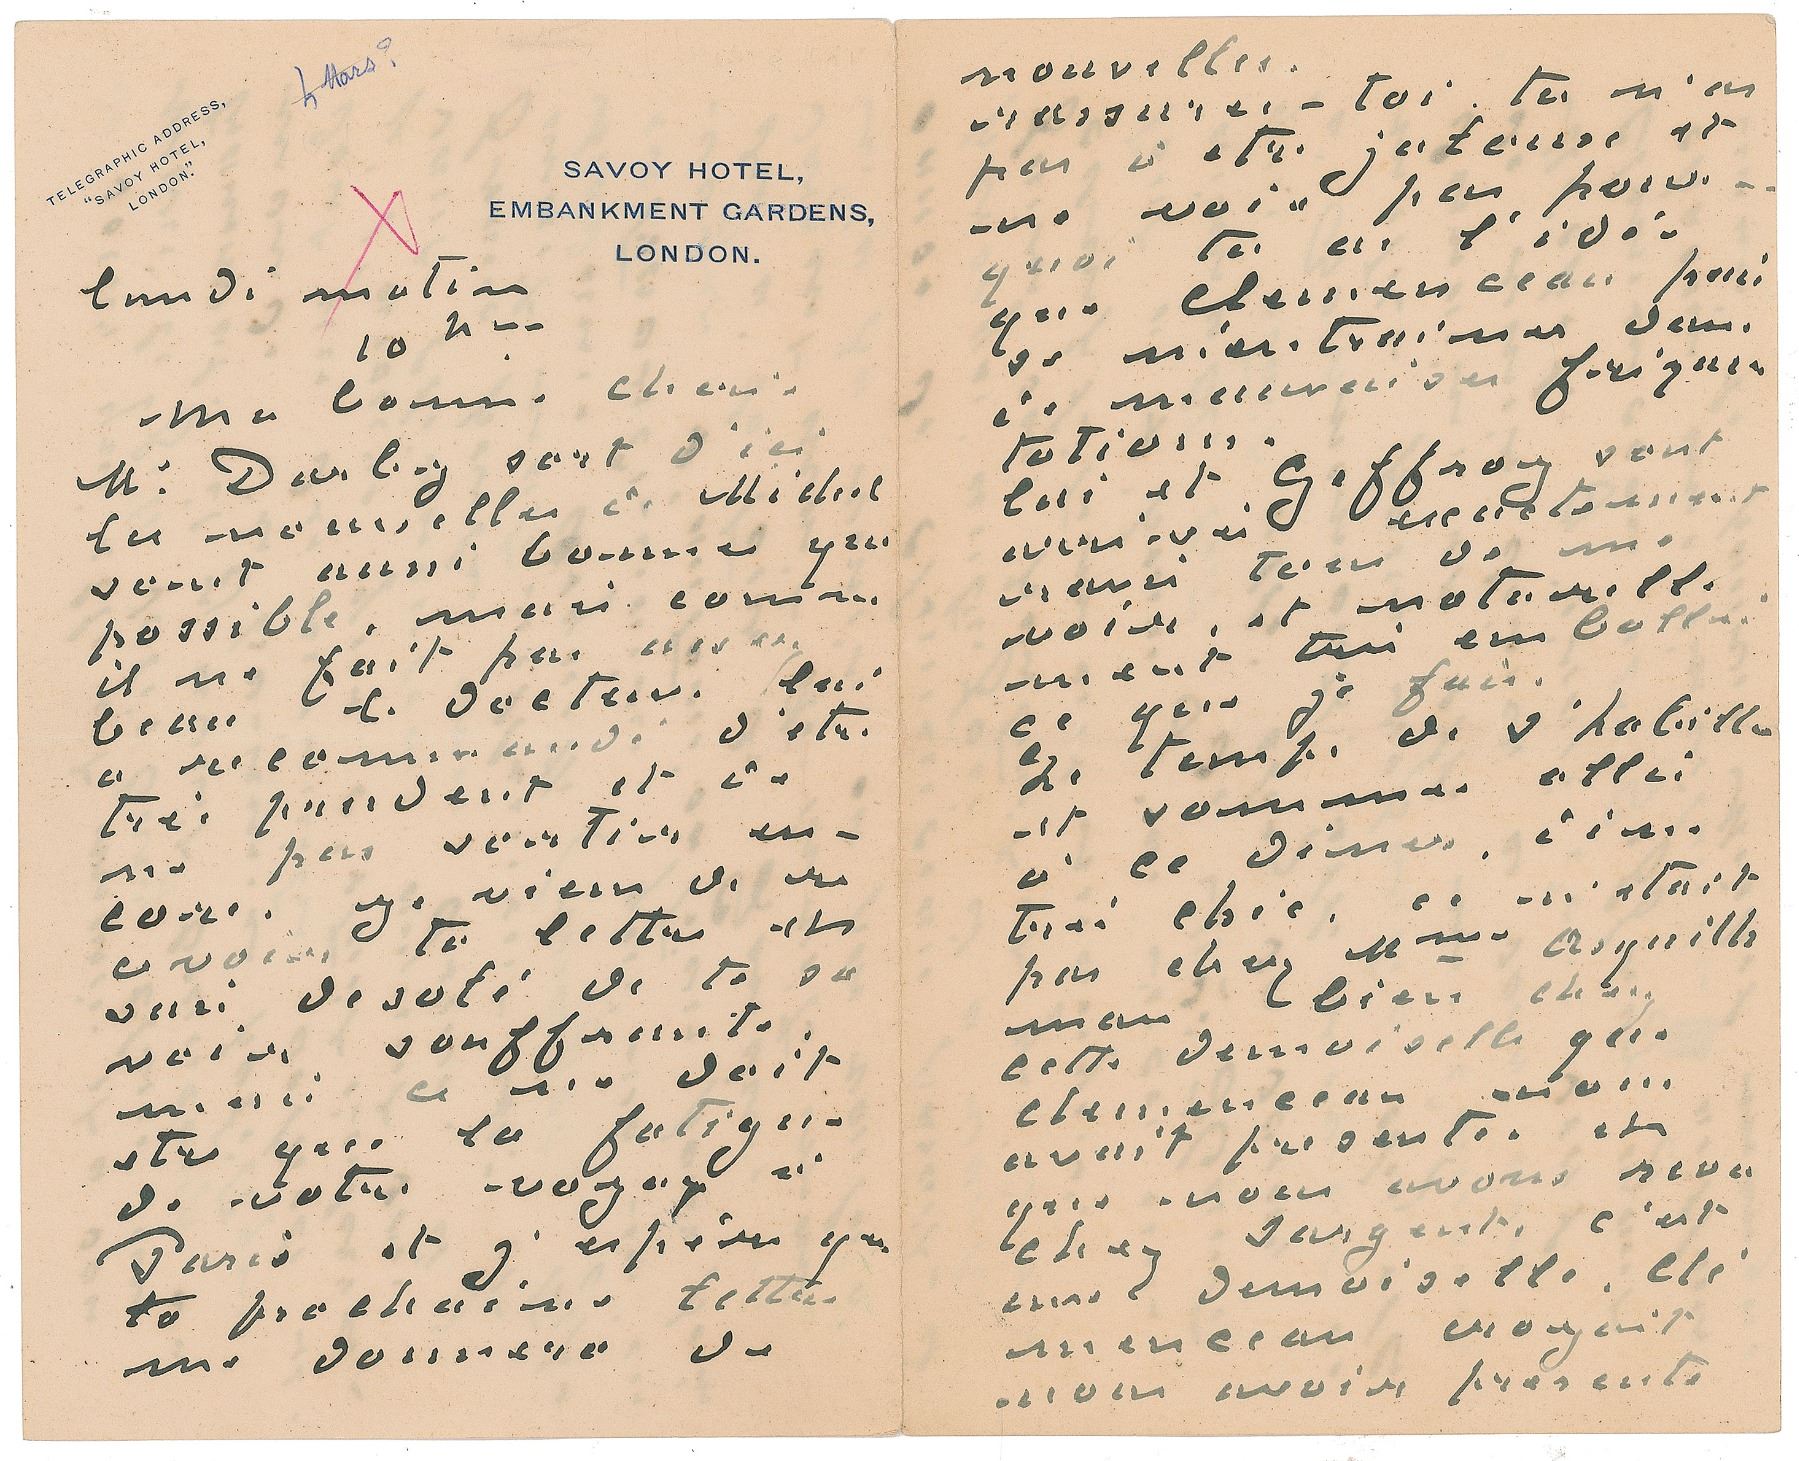 4 Mars?
TELEGRAPHIC ADDRESS,
"SAVOY HOTEL,
LONDON."
SAVOY HOTEL,
EMBANKMENT GARDENS,
LONDON.
lundi matin
10 h
Ma bonne chérie
les nouvelles de Michel
sont aussi bonnes que
possible, mais comme
il ne fait pas assez
beau le docteur lui
a recommandé d'être
très prudent et de
ne pas sortir en-
core. Je viens de re
cevoir ta lettre et
suis désolé de te sa
voir souffrante.
mais ce ne doit
être que la fatigue
de votre voyage à
Paris et j'espère que
ta prochaine lettre
me donnera de
nouvelles.
rassures-toi. tu n'as
pas à être jalouse et
ne vois pas pour-
quoi tu as l'idée
que Clemenceau puis
se m'entrainer dans
de mauvaises fréquen
tations.
lui et Geffroy sont
arrivés exactement
ravis tous de me
voir, et naturelle
ment très emballés
ce que je fais.
le temps de s'habiller
et sommes allés
à ce diner, dîner
très chic, ce n'était
pas chez Mme Asquith
mais bien chez
cette demoiselle que
Clemenceau nous
avait présentée et
que nous avons revu
chez Sargent, c'est
une demoiselle. Clé
menceau croyait
nous avoir présenté